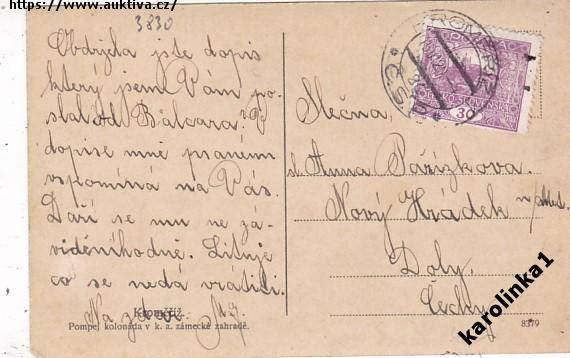 https://www.auktiva.cz/
3830
Obdržela jste dopis
který jsem Vám po-
slal od Balcara. V
dopise mně psaném
vspomíná na Vás.
Daří se mu ne zá-
viděníhodně. Lituje
co se nedá vrátiti.
Na zdar
Kroměříž.
Pompej. kolonáda v k. a. zámecké zahradě.
KROMĚŘÍŽ
Č.S.
ČESKO-SLOVENSKÁ
30
Slečna,
sl. Anna Pařízkova.
Nový Hrádek
Doly.
Čechy
8379
karolinka1